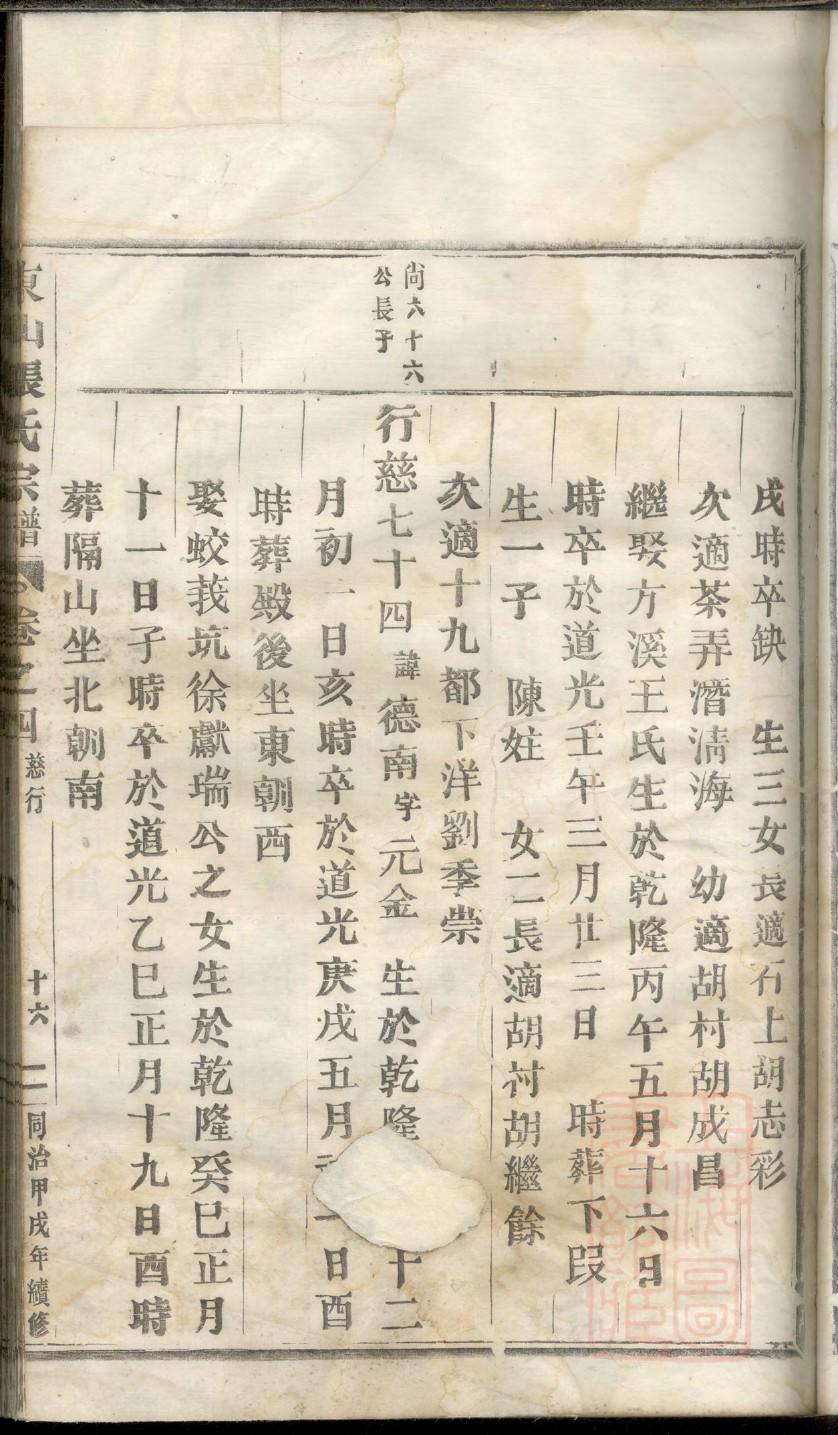 戌時卒缺 生三女長適石上胡志彩
次適茶弄潛淸海 幼適胡村胡成昌
繼娶方溪王氏生於乾隆丙午五月十六日
時卒於道光壬午三月廿三日 時葬下段
生一子 陳妵 女二長適胡村胡繼餘
次適十九都下洋劉季崇
尙六十六
公長子
行慈七十四諱德南字元金 生於乾隆 十二
月初一日亥時卒於道光庚戌五月 一日酉
時葬殿後坐東朝西
娶蛟莪坑徐獻瑞公之女生於乾隆癸巳正月
十一日子時卒於道光乙巳正月十九日酉時
葬隔山坐北朝南
東山張氏宗譜 卷之四 慈行 十六 同治甲戌年續修